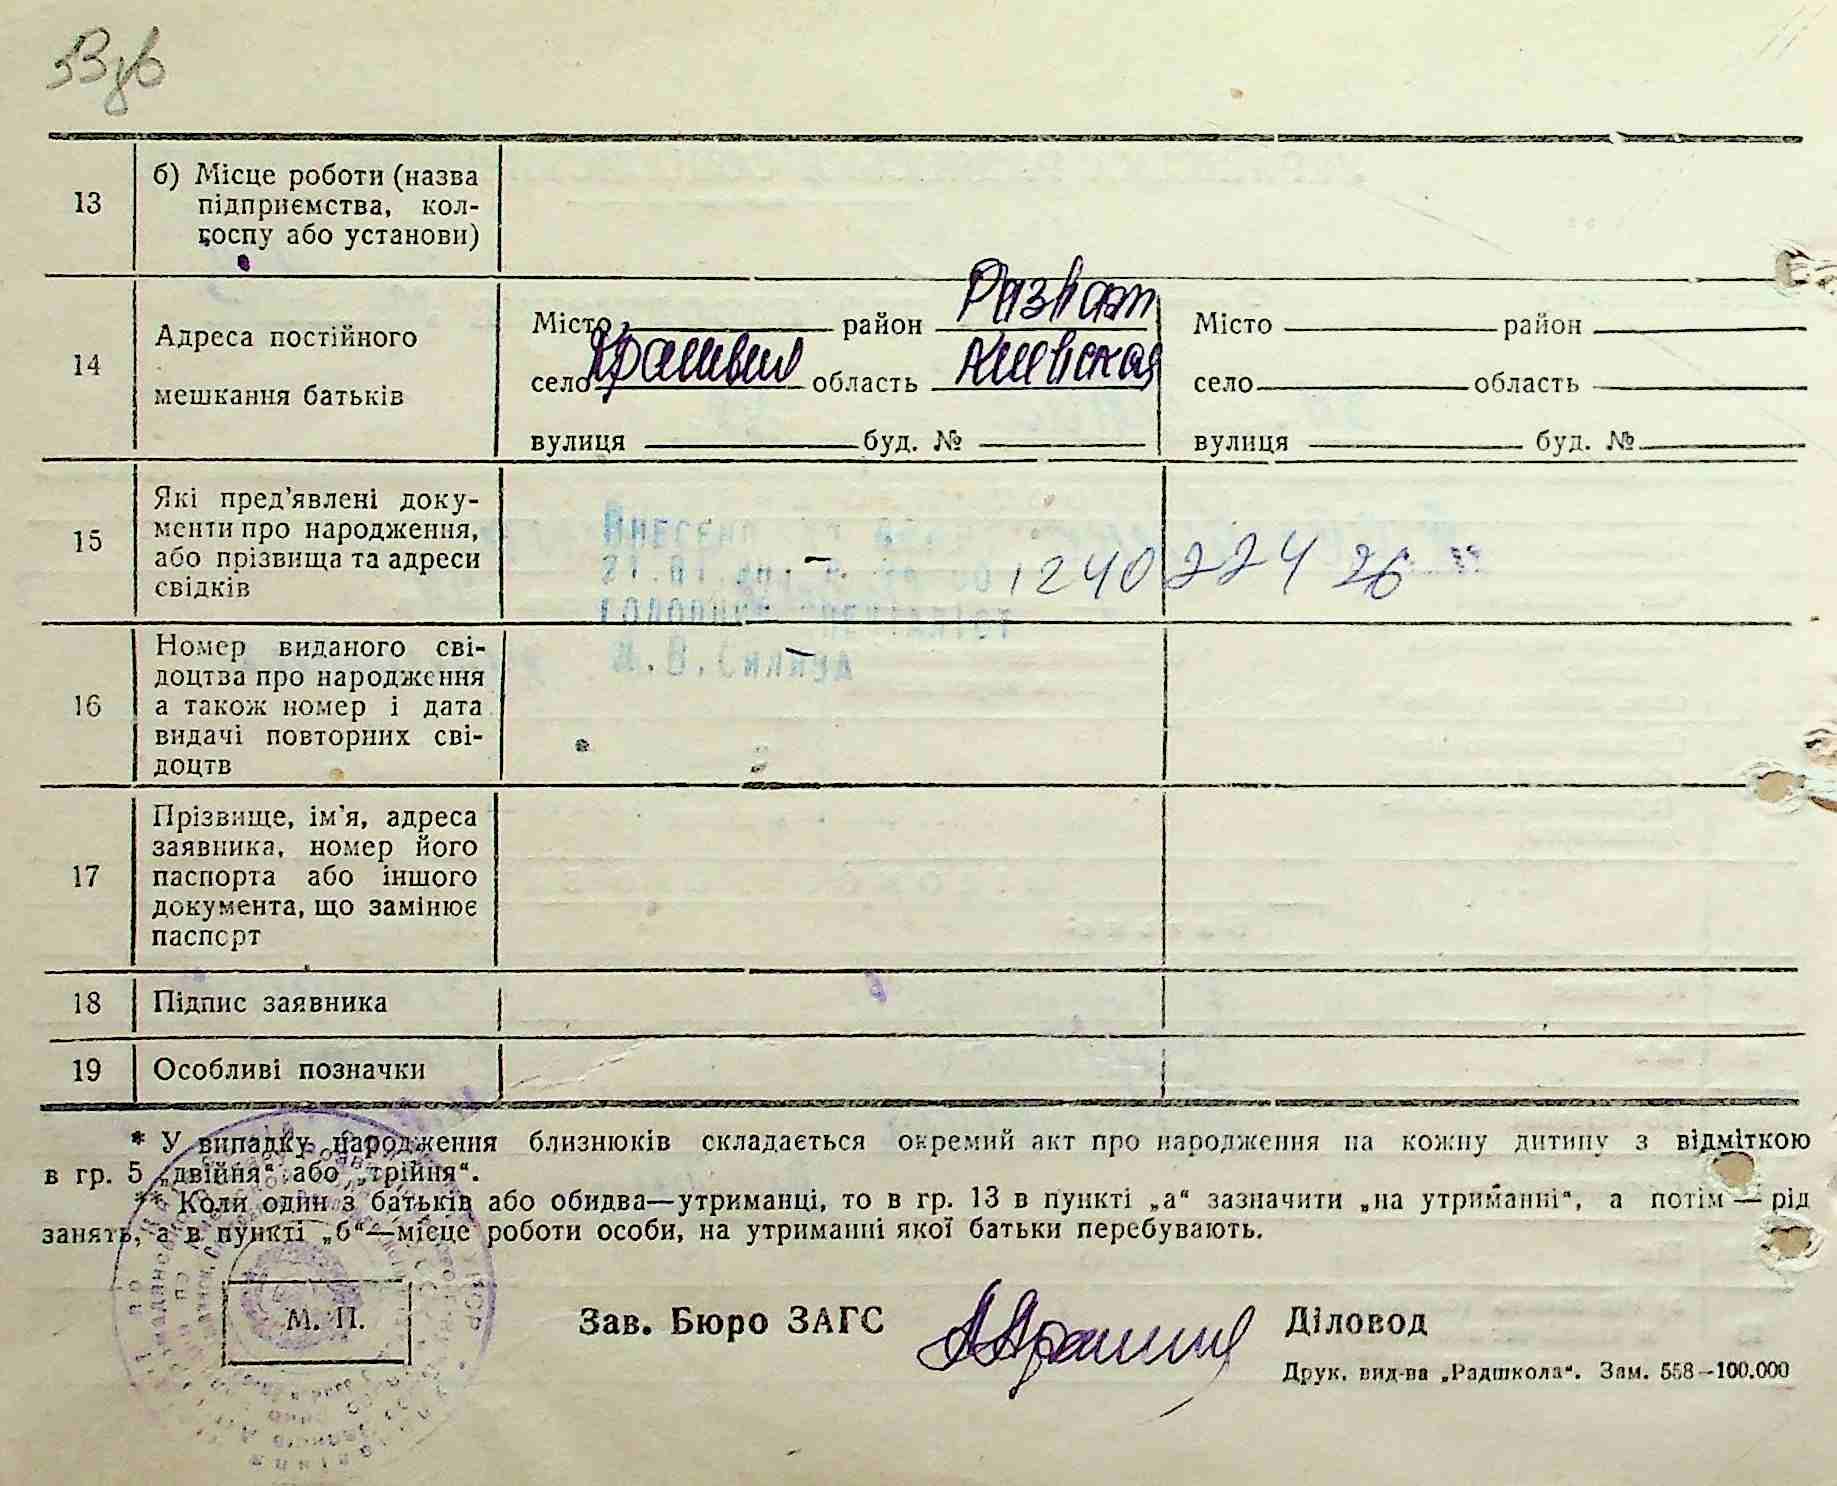 13
б) Місце роботи (назва
підприємства, кол-
госпу або установи)
14
Адреса постійного
мешкання батьків
Місто район Разваж
село область Киевская
вулиця буд. №
Місто район
село область
вулиця буд. №
15
Які пред'явлені доку-
менти про народження,
або прізвища та адреси
свідків
Внесено
12402244 26
головний спеціаліст
16
Номер виданого сві-
доцтва про народження
а також номер і дата
видачі повторних сві-
доцтв
17
Прізвище, ім'я, адреса
заявника, номер його
паспорта або іншого
документа, що замінює
паспорт
18 Підпис заявника
19 Особливі позначки
* У випадку народження близнюків складається окремий акт про народження на кожну дитину з відміткою
в гр. 5 „двійня“ або „трійня“.
** Коли один з батьків або обидва—утриманці, то в гр. 13 в пункті „а“ зазначити „на утриманні“, а потім — рід
занять, а в пункті „б“—місце роботи особи, на утриманні якої батьки перебувають.
М. П.
Зав. Бюро ЗАГС
Діловод
Друк. вид-ва „Радшкола“. Зам. 558—100.000